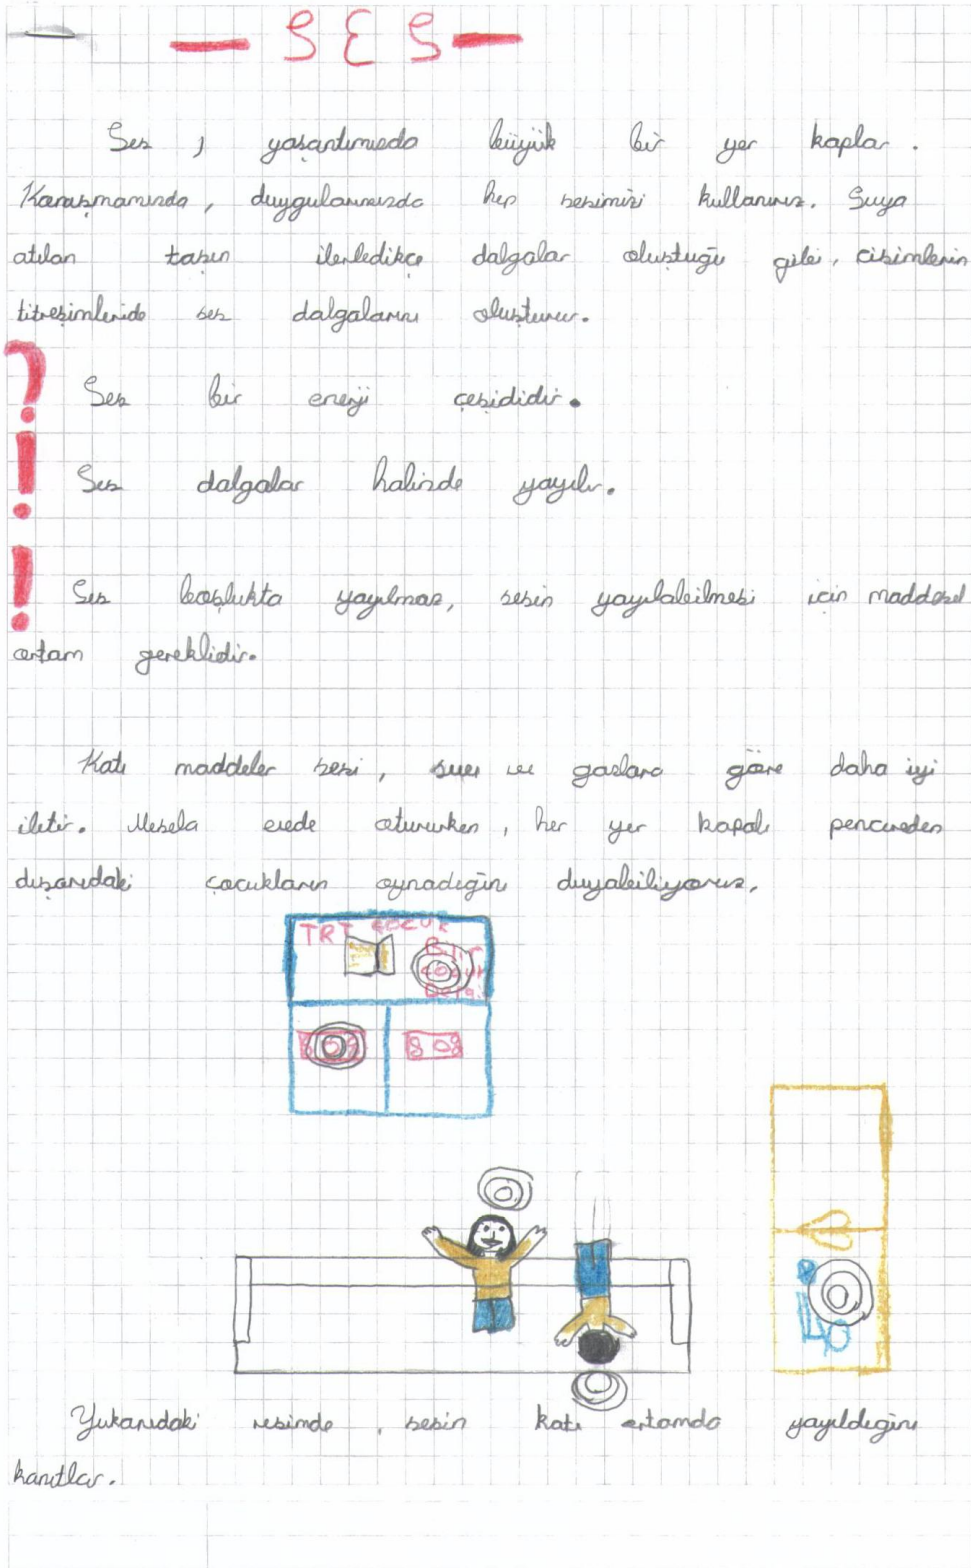 — SES —
Ses, yaşantımızda büyük bir yer kaplar.
Konuşmamızda, duygularımızda hep sesimizi kullanırız. Suya
atılan taşın ilerledikçe dalgalar oluştuğu gibi, cisimlerin
titreşimleride ses dalgalarını oluşturur.
? Ses bir enerji çeşididir.
! Ses dalgalar halinde yayılır.
! Ses boşlukta yayılmaz, sesin yayılabilmesi için maddesel
ortam gereklidir.
Katı maddeler sesi, sıvı ve gazlara göre daha iyi
iletir. Mesela evde otururken, her yer kapalı pencereden
dışarıdaki çocukların oynadığını duyabiliyoruz.
TRT ÇOCUK
Yukarıdaki resimde, sesin katı ortamda yayıldığını
kanıtlar.